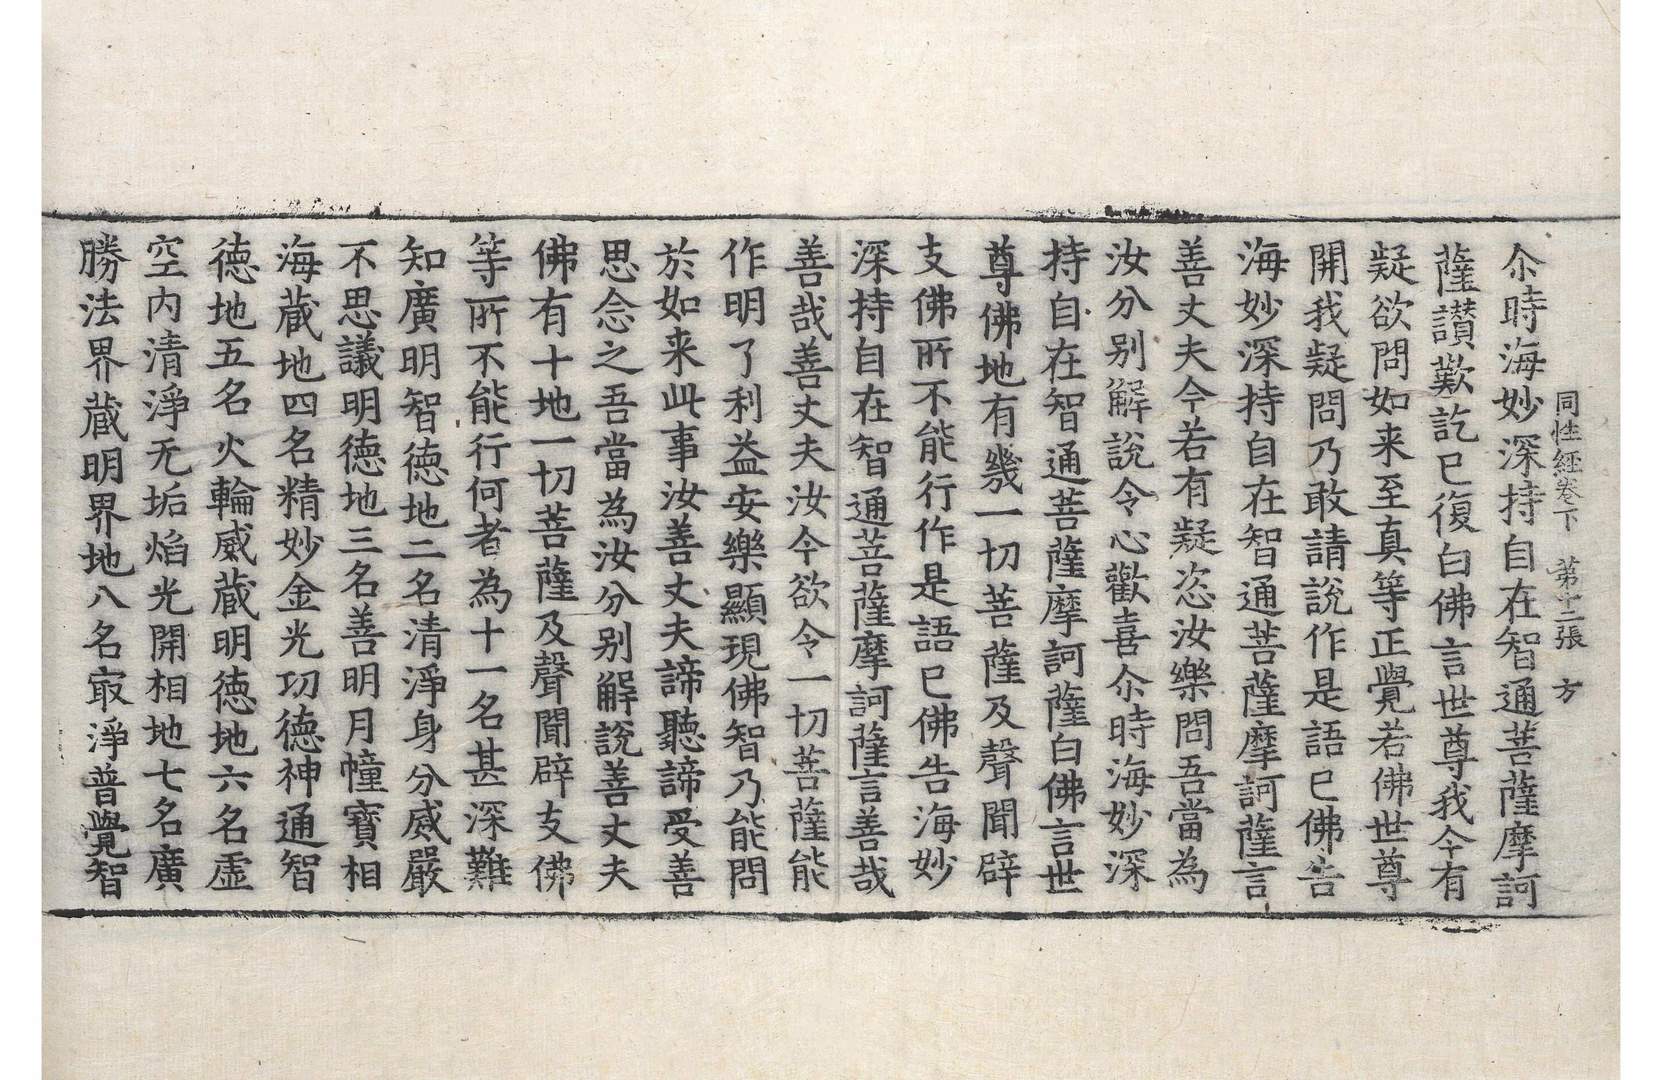 同性經卷下　第十二張　方
尒時海妙深持自在智通菩薩摩訶
薩讃歎訖已復白佛言世尊我今有
疑欲問如来至真等正覺若佛世尊
開我疑問乃敢請說作是語已佛告
海妙深持自在智通菩薩摩訶薩言
善丈夫今若有疑恣汝樂問吾當為
汝分别解說令心歡喜尒時海妙深
持自在智通菩薩摩訶薩白佛言世
尊佛地有幾一切菩薩及聲聞辟
支佛所不能行作是語已佛告海妙
深持自在智通菩薩摩訶薩言善哉
善哉善丈夫汝今欲令一切菩薩能
作明了利益安樂顯現佛智乃能問
於如来此事汝善丈夫諦聽諦受善
思念之吾當為汝分别解說善丈夫
佛有十地一切菩薩及聲聞辟支佛
等所不能行何者為十一名甚深難
知廣明智德地二名清淨身分威嚴
不思議明德地三名善明月幢寳相
海蔵地四名精妙金光功德神通智
德地五名火輪威蔵明德地六名虛
空內清淨无垢焰光開相地七名廣
勝法界蔵明界地八名㝡淨普覺智